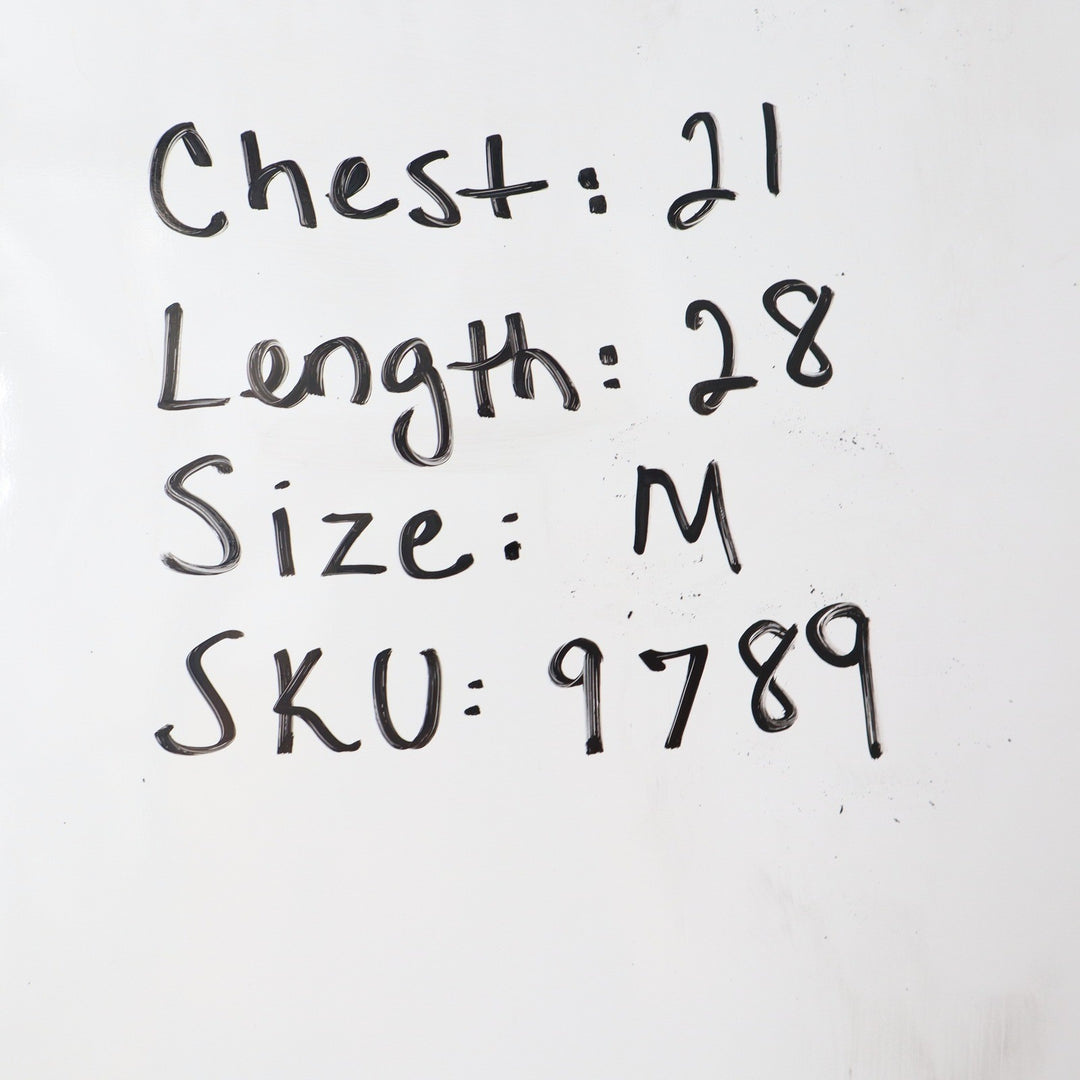 Chest: 21
Length: 28
Size: M
SKU: 9789